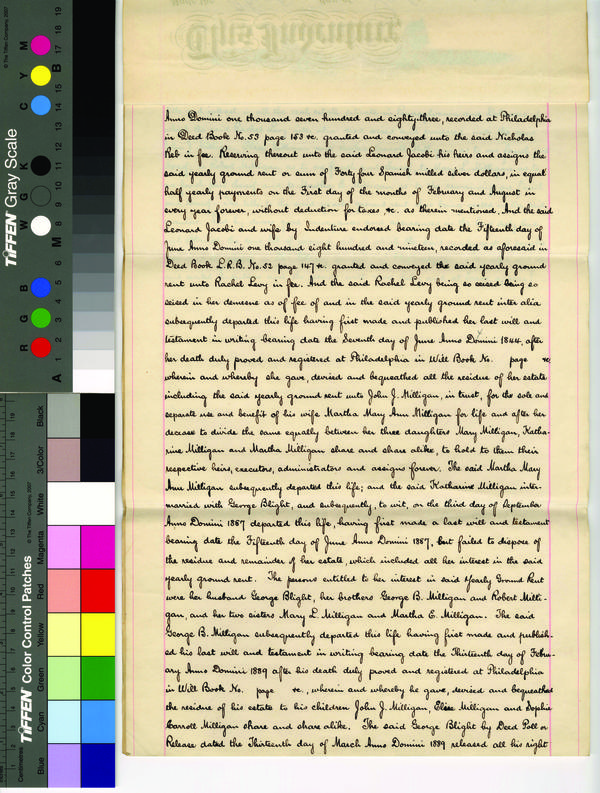 This Indenture
Anno Domini one thousand seven hundred and eighty-three, recorded at Philadelphia
in Deed Book No. 53 page 153 &c. granted and conveyed unto the said Nicholas
Reb in fee. Reserving thereout unto the said Leonard Jacobi his heirs and assigns the
said yearly ground rent or sum of Forty four Spanish milled silver dollars, in equal
half yearly payments on the First day of the months of February and August in
every year forever, without deduction for taxes &c. as therein mentioned. And the said
Leonard Jacobi and wife by Indenture endorsed bearing date the Fifteenth day of
June Anno Domini one thousand eight hundred and nineteen, recorded as aforesaid in
Deed Book L.R.B. No. 52 page 147 &c. granted and conveyed the said yearly ground
rent unto Rachel Levy in fee. And the said Rachel Levy being so seised being so
seised in her demesne as of fee of and in the said yearly ground rent inter alia
subsequently departed this life having first made and published her last will and
testament in writing bearing date the Seventh day of June Anno Domini 1844, after
her death duly proved and registered at Philadelphia in Will Book No. page &c
wherein and whereby she gave, devised and bequeathed all the residue of her estate
including the said yearly ground rent unto John J. Milligan, in trust, for the sole and
separate use and benefit of his wife Martha Mary Ann Milligan for life and after her
decease to divide the same equally between her three daughters Mary Milligan, Katha-
rine Milligan and Martha Milligan share and share alike, to hold to them their
respective heirs, executors, administrators and assigns forever. The said Martha Mary
Ann Milligan subsequently departed this life; and the said Katharine Milligan inter-
married with George Blight, and subsequently, to wit, on the third day of September
Anno Domini 1867 departed this life, having first made a last will and testament
bearing date the Fifteenth day of June Anno Domini 1867, but failed to dispose of
the residue and remainder of her estate, which included all her interest in the said
yearly ground rent. The persons entitled to her interest in said Yearly Ground Rent
were her husband George Blight, her brothers George B. Milligan and Robert Milli-
gan, and her two sisters Mary L. Milligan and Martha E. Milligan. The said
George B. Milligan subsequently departed this life having first made and publish-
ed his last will and testament in writing bearing date the Thirteenth day of Febru-
ary Anno Domini 1889 after his death duly proved and registered at Philadelphia
in Will Book No. page &c., wherein and whereby he gave, devised and bequeathed
the residue of his estate to his children John J. Milligan, Elise Milligan and Sophie
Carroll Milligan share and share alike. The said George Blight by Deed Poll or
Release dated the Thirteenth day of March Anno Domini 1889 released all his right
TIFFEN Gray Scale
© The Tiffen Company, 2007
R G B W G K C Y M
A 1 2 3 4 5 6 M 8 9 10 11 12 13 14 15 B 17 18 19
TIFFEN Color Control Patches
© The Tiffen Company, 2007
Centimetres
Blue
Cyan
Green
Yellow
Red
Magenta
White
3/Color
Black